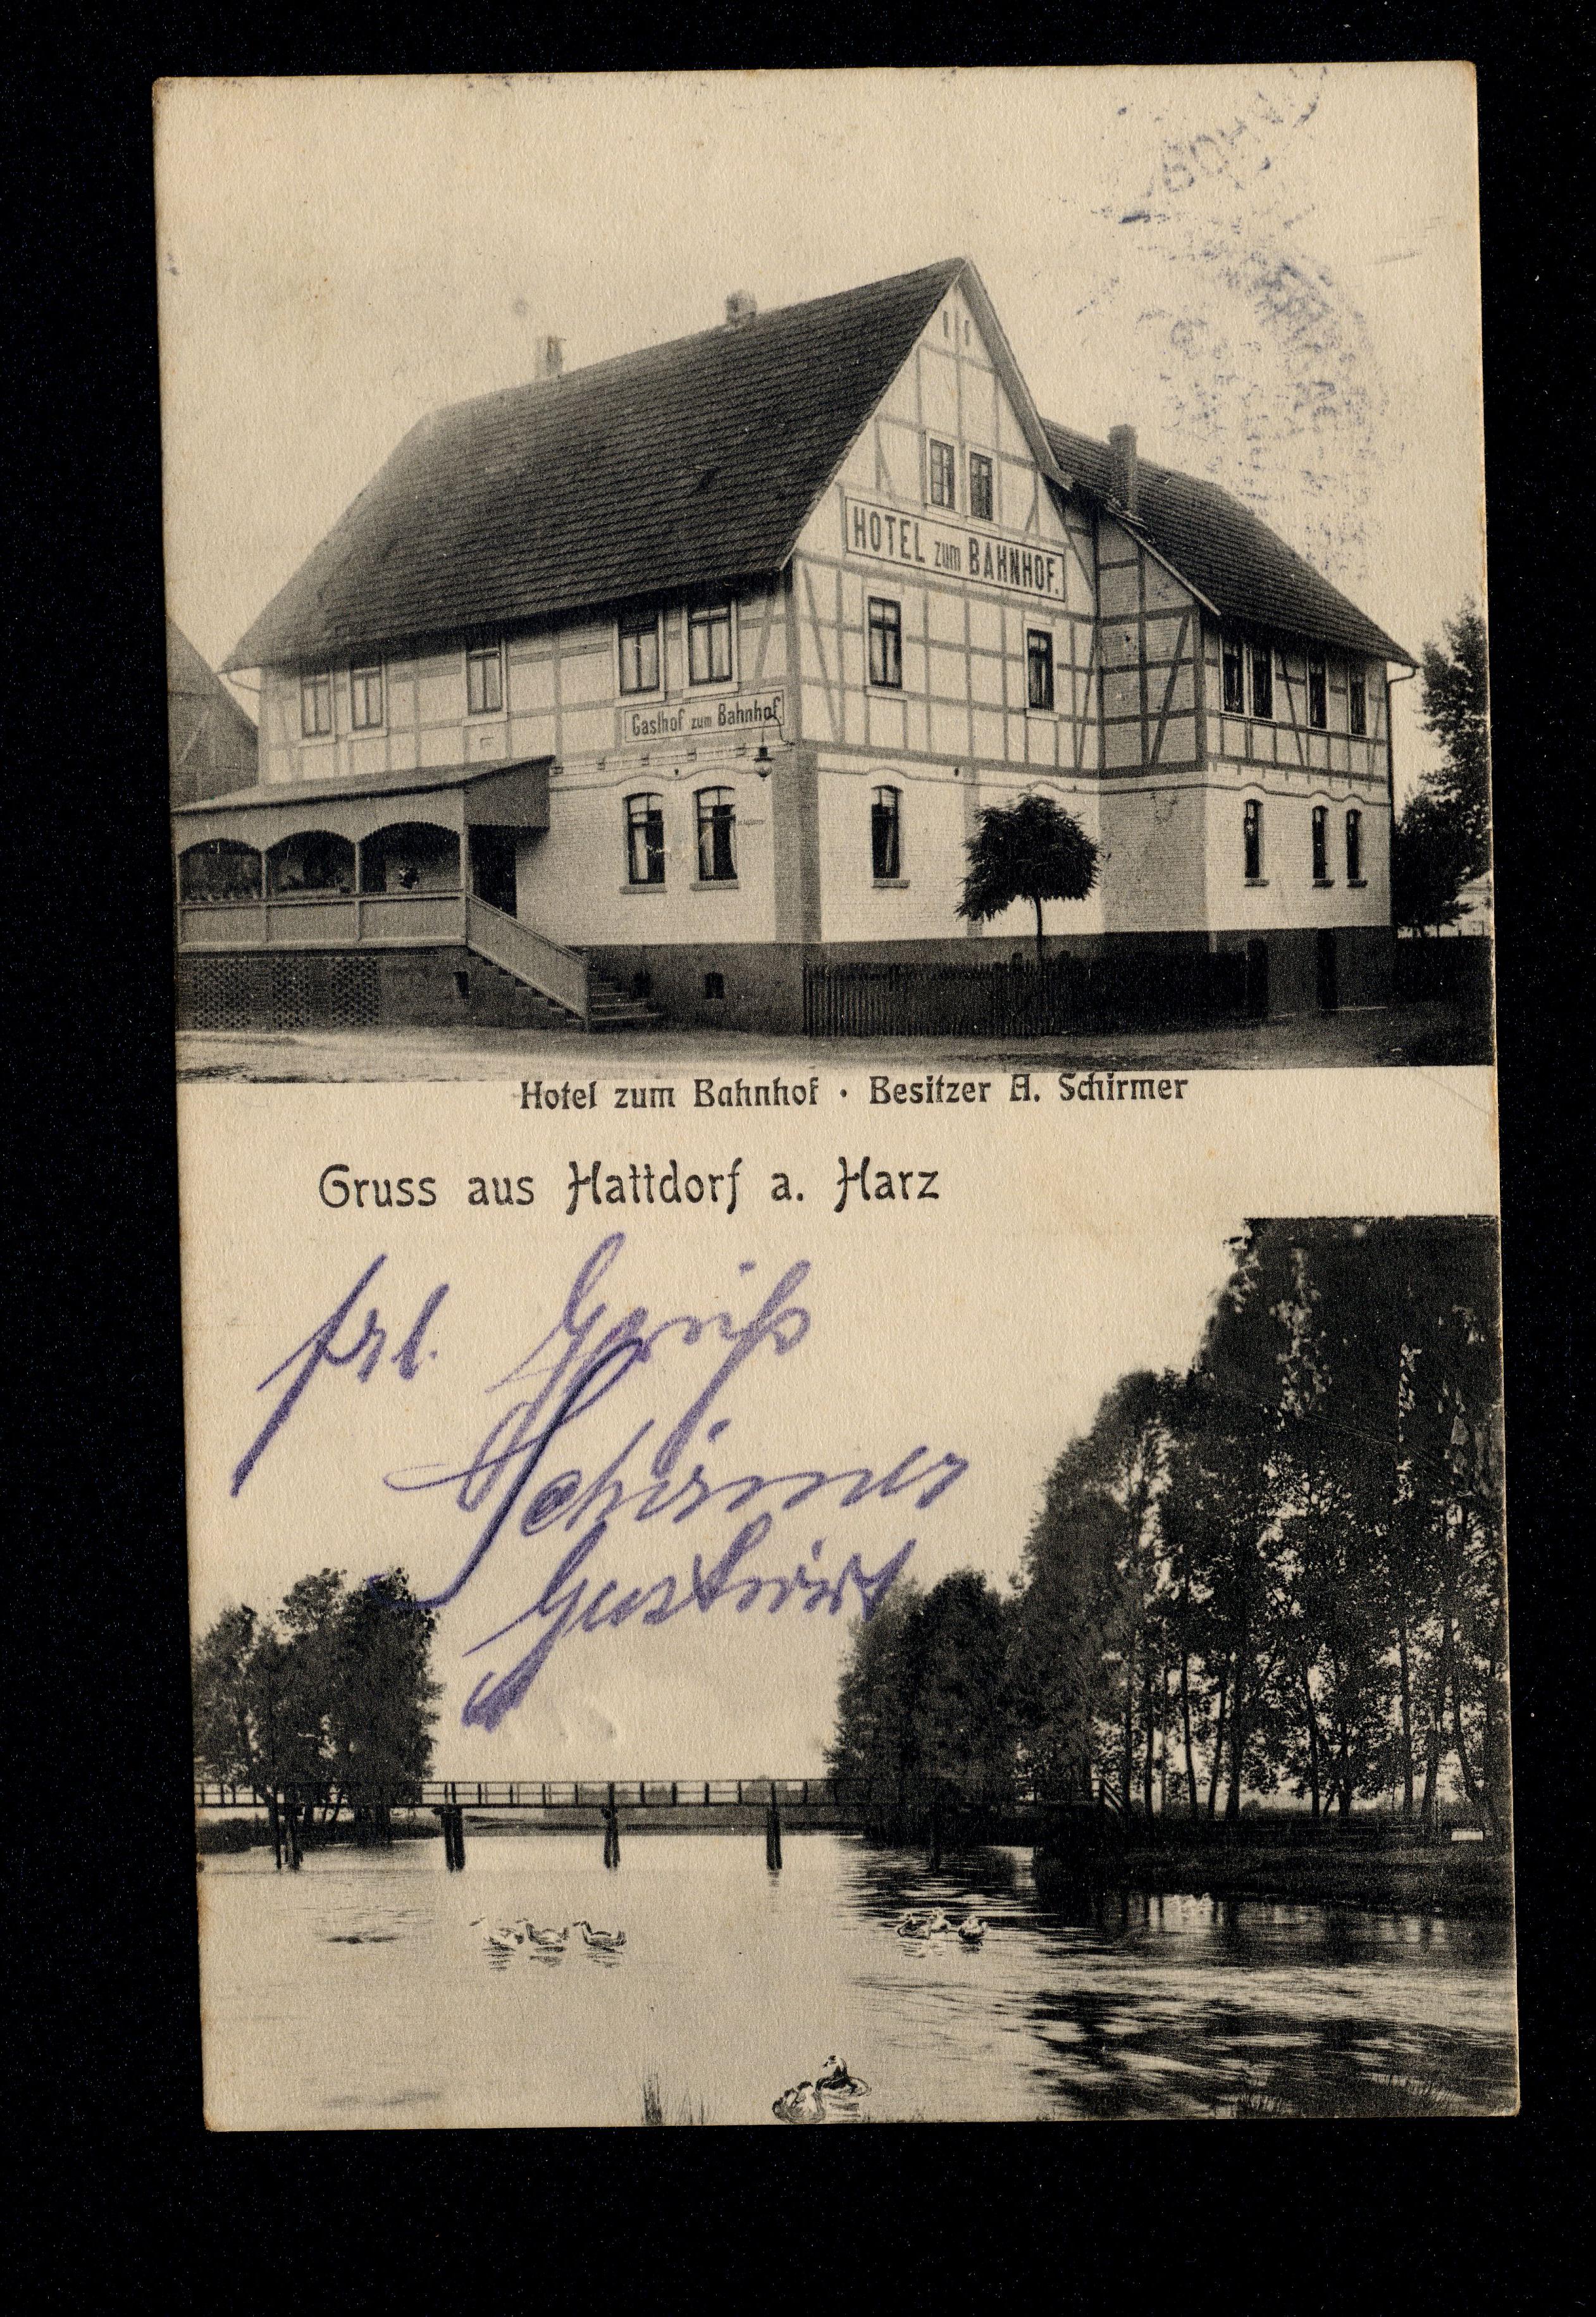 HOTEL zum BAHNHOF.
Gasthof zum Bahnhof
Hotel zum Bahnhof · Besitzer A. Schirmer
Gruss aus Hattdorf a. Harz
frl. Gruß
Schirmer
Gastwirt